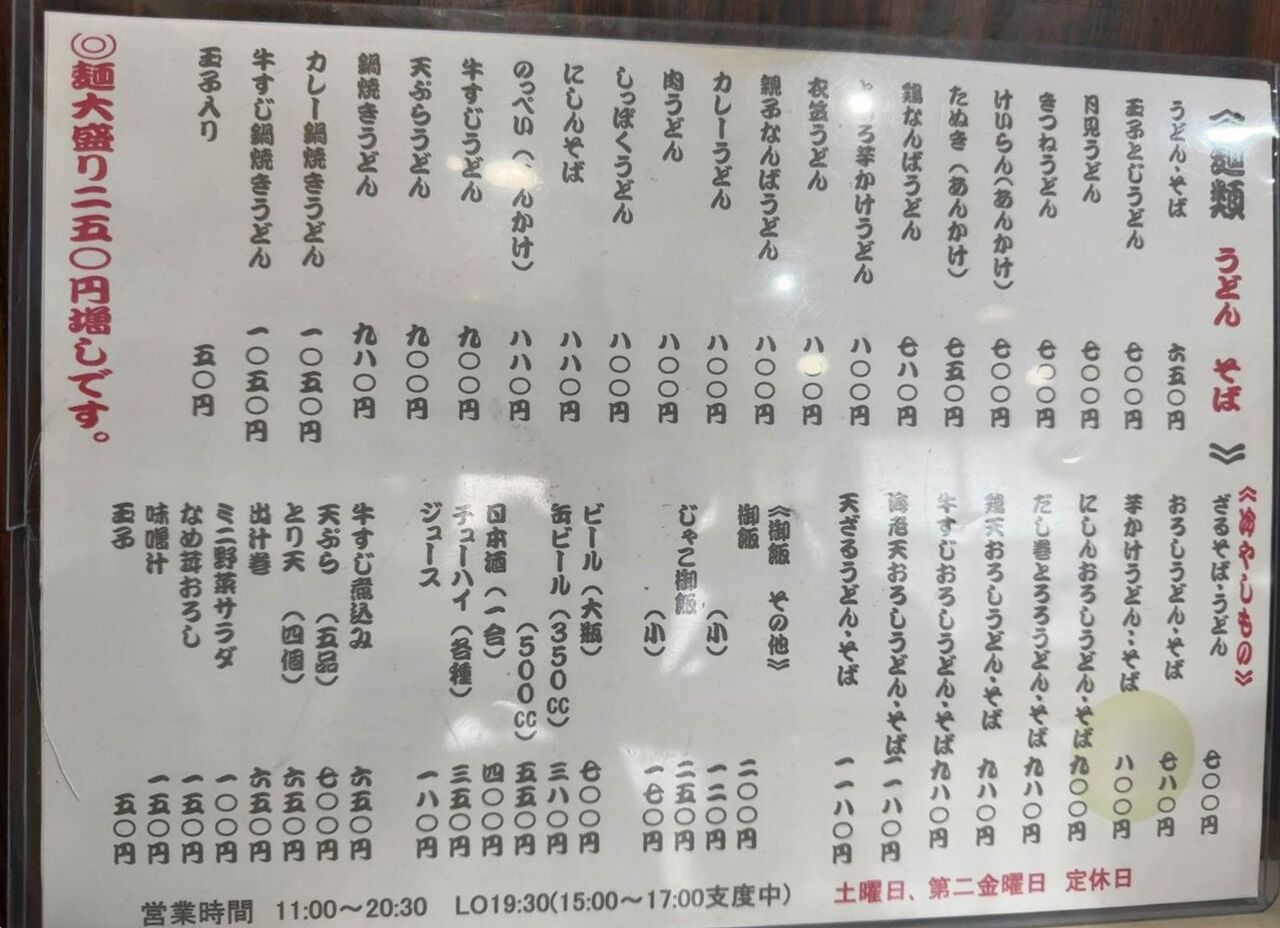 《麺類　うどん　そば　》
うどん・そば　六五〇円
玉子とじうどん　七〇〇円
月見うどん　七〇〇円
きつねうどん　七〇〇円
けいらん（あんかけ）　七〇〇円
たぬき（あんかけ）　七五〇円
鶏なんばうどん　七八〇円
とろろ芋かけうどん　八〇〇円
衣笠うどん　八〇〇円
親子なんばうどん　八〇〇円
カレーうどん　八〇〇円
肉うどん　八〇〇円
しっぽくうどん　八〇〇円
にしんそば　八八〇円
のっぺい（あんかけ）　八八〇円
牛すじうどん　九〇〇円
天ぷらうどん　九〇〇円
鍋焼きうどん　九八〇円
カレー鍋焼きうどん　一〇五〇円
牛すじ鍋焼きうどん　一〇五〇円
玉子入り　五〇円
◎麺大盛り二五〇円増しです。
《冷やしもの》
ざるそば・うどん　七〇〇円
おろしうどん・そば　七八〇円
芋かけうどん・・そば　八〇〇円
にしんおろしうどん・そば　九〇〇円
だし巻とろろうどん・そば　九八〇円
鶏天おろしうどん・そば　九八〇円
牛すじおろしうどん・そば　九八〇円
海老天おろしうどん・そば　一一八〇円
天ざるうどん・そば　一一八〇円
《御飯　その他》
御飯　二〇〇円
（小）　一二〇円
じゃこ御飯　二五〇円
（小）　一七〇円
ビール（大瓶）　七〇〇円
缶ビール（350cc）　三八〇円
（500cc）　五五〇円
日本酒（一合）　四〇〇円
チューハイ（各種）　三五〇円
ジュース　一八〇円
牛すじ煮込み　六五〇円
天ぷら　（五品）　七〇〇円
とり天　（四個）　六五〇円
出汁巻　六五〇円
ミニ野菜サラダ　一〇〇円
なめ茸おろし　一五〇円
味噌汁　一五〇円
玉子　五〇円
土曜日、第二金曜日　定休日
営業時間　11:00～20:30　LO19:30(15:00～17:00支度中)